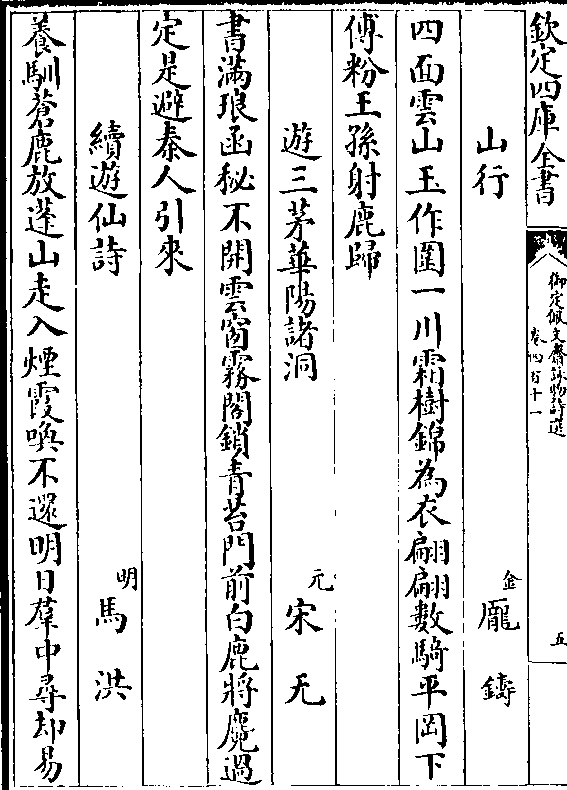 欽定四庫全書
御定佩文齋詠物詩選
卷四百十一
五
山行
金
龎鑄
四面雲山玉作圍一川霜樹錦為衣翩翩數騎平岡下
傅粉王孫射鹿歸
遊三茅華陽諸洞
元
宋无
書滿琅函秘不開雲窗霧閣鎖青苔門前白鹿將麑過
定是避秦人引來
續遊仙詩
明
馬洪
養馴蒼鹿放蓬山走入煙霞喚不還明日羣中尋却易